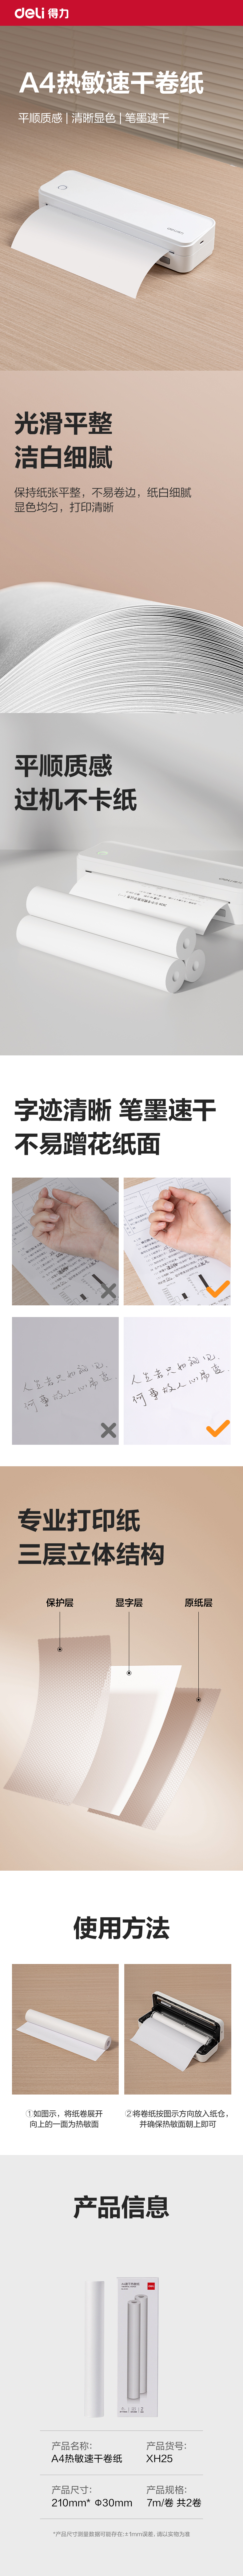 deli 得力
A4热敏速干卷纸
平顺质感 | 清晰显色 | 笔墨速干
deli
光滑平整
洁白细腻
保持纸张平整，不易卷边，纸白细腻
显色均匀，打印清晰
平顺质感
过机不卡纸
字迹清晰 笔墨速干
不易蹭花纸面
人生若只如初见，
何事秋风悲画扇
人生若只如初见，
专业打印纸
三层立体结构
保护层 显字层 原纸层
使用方法
①如图示，将纸卷展开
向上的一面为热敏面
②将卷纸按图示方向放入纸仓，
并确保热敏面朝上即可
产品信息
产品名称： 产品货号：
A4热敏速干卷纸 XH25
产品尺寸： 产品规格：
210mm* Φ30mm 7m/卷 共2卷
*产品尺寸测量数据可能存在±1mm误差，请以实物为准